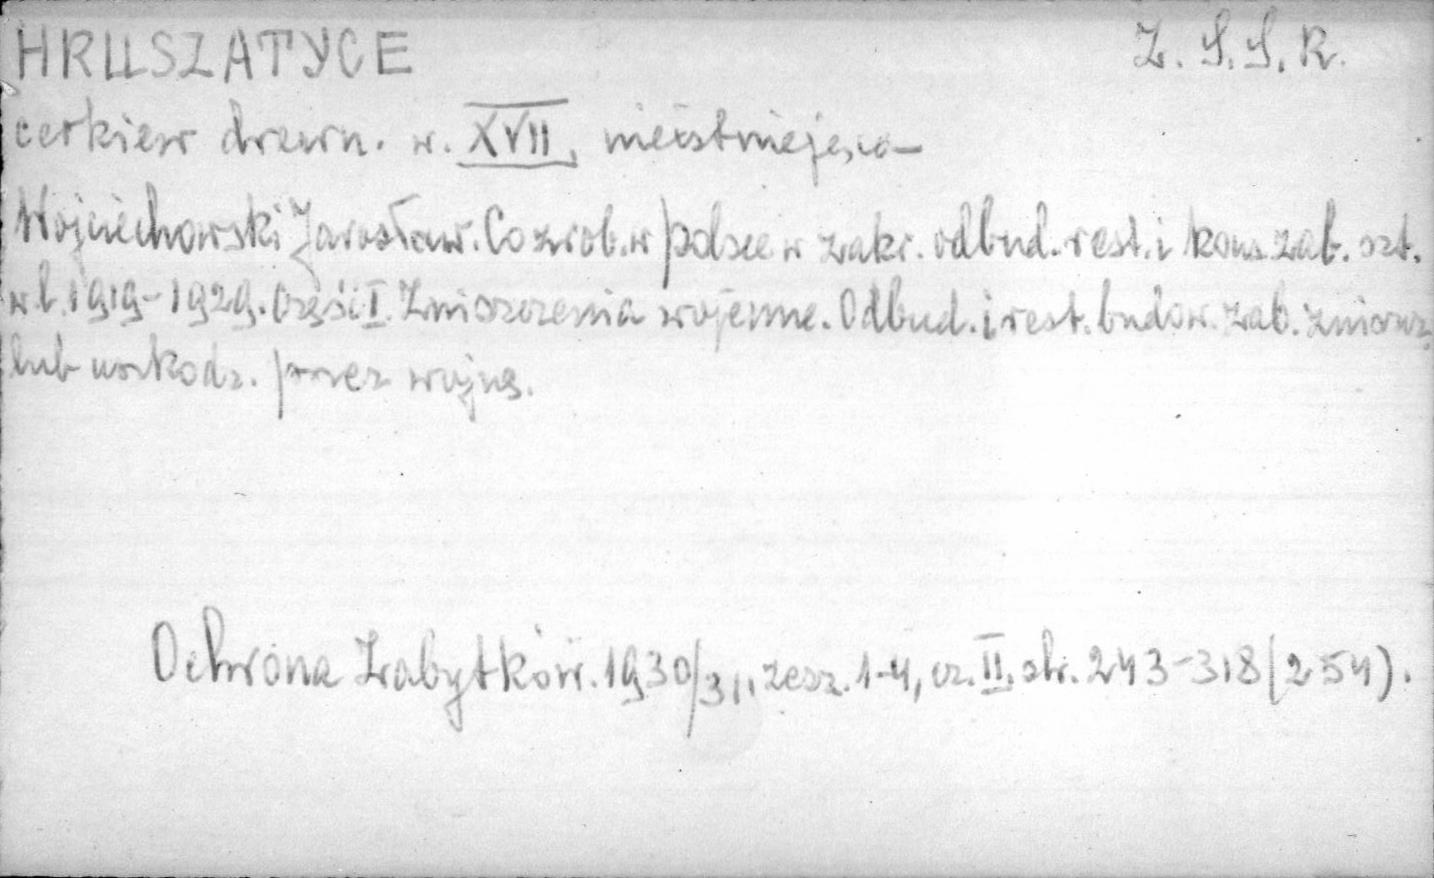 HRUSZATYCE Z.S.S.R.
cerkiew drewn. w. XVII, nieistniejąca
Wojciechowski Jarosław. Co zrob. w Polsce w zakr. odbud. rest. i kons. zab. szt.
w l. 1919-1929. Część I. Zniszczenia wojenne. Odbud. i rest. budow. zab. zniszcz.
lub uszkodz. przez wojnę.
Ochrona Zabytków. 1930/31, zesz. 1-4, cz. II, str. 243-318 (254).